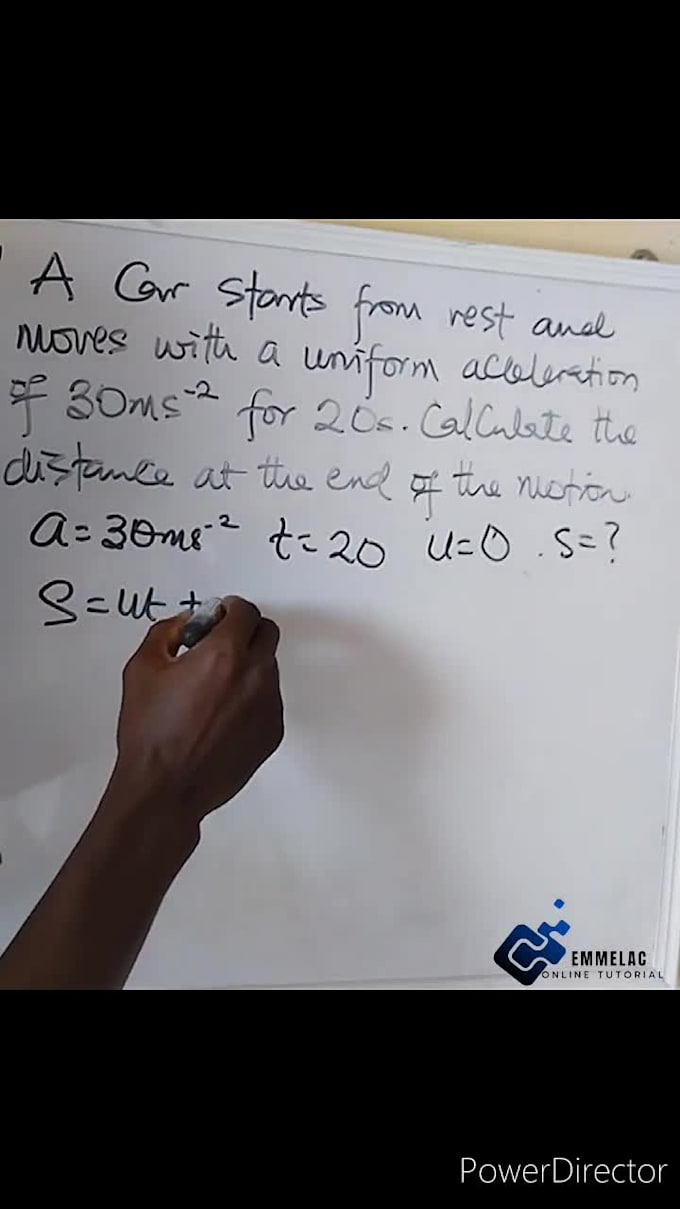 A Car starts from rest and
moves with a uniform acceleration
of 30ms⁻² for 20s. Calculate the
distance at the end of the motion.
a=30ms⁻² t=20 u=0 . s=?
S=ut +
EMMELAC
ONLINE TUTORIAL
PowerDirector